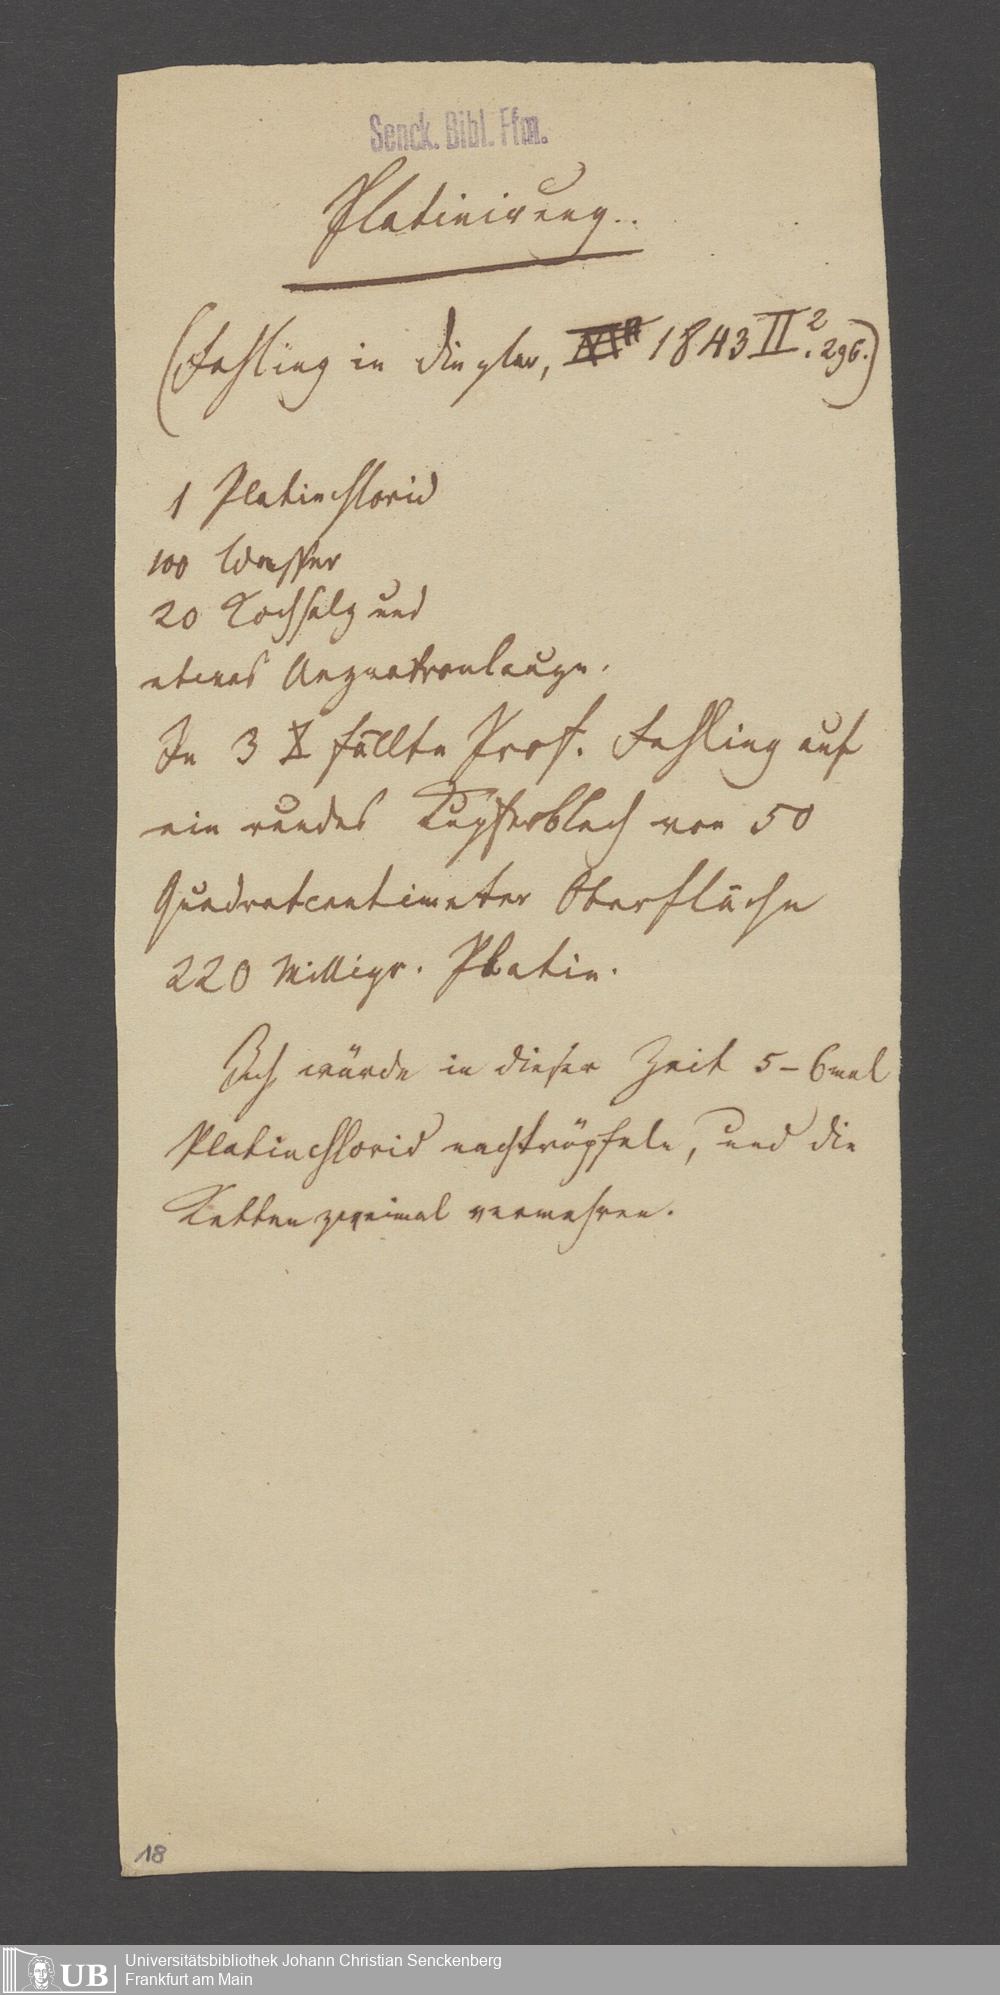 Senck. Bibl. Ffm.
Platinirung.
(Fehling in Dingler, 1843 II. 2 296.)
1 Platinchlorid
100 Wasser
20 Kochsalz und
etwas Aeznatronlauge.
In 3 X fällte Prof. Fehling auf
ein rundes Kupferblech von 50
Quadratcentimeter Oberfläche
220 Milligr. Platin.
Ich würde in dieser Zeit 5-6mal
Platinchlorid nachtröpfeln, und die
Ketten zweimal vermehren.
18
UB
Universitätsbibliothek Johann Christian Senckenberg
Frankfurt am Main